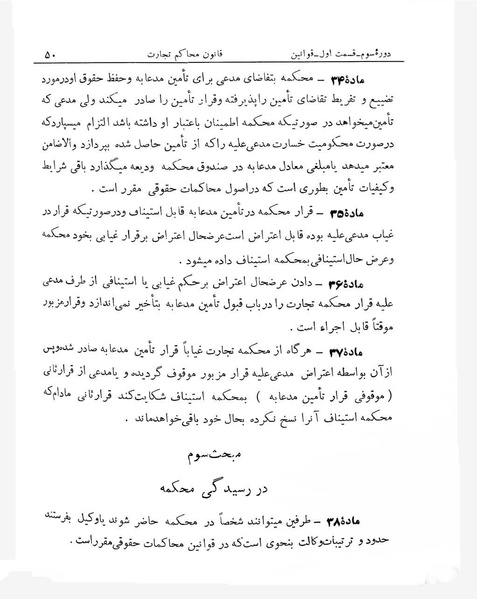 دورهٔ سوم ـ قسمت اول ـ قوانین قانون محاکم تجارت ۵۰
مادهٔ ۳۴ ـ محکمه بتقاضای مدعی برای تأمین مدعابه وحفظ حقوق اودرمورد
تضییع و تفریط تقاضای تأمین راپذیرفته وقرار تأمین را صادر میکند ولی مدعی که
تأمین‌میخواهد در صورتیکه محکمه اطمینان باعتبار او داشته باشد التزام میسپاردکه
درصورت محکومیت خسارت مدعی‌علیه راکه از تأمین حاصل شده بپردازد والاضامن
معتبر میدهد یامبلغی معادل مدعابه در صندوق محکمه ودیعه میگذارد باقی شرایط
وکیفیات تأمین بطوری است که دراصول محاکمات حقوقی مقرر است .
مادهٔ ۳۵ ـ قرار محکمه درتأمین مدعابه قابل استیناف ودرصورتیکه قرار در
غیاب مدعی‌علیه بوده قابل اعتراض است‌عرضحال اعتراض برقرار غیابی بخود محکمه
وعرض حال‌استینافی‌بمحکمه استیناف داده میشود .
مادهٔ ۳۶ ـ دادن عرضحال اعتراض برحکم غیابی یا استینافی از طرف مدعی
علیه قرار محکمه تجارت را درباب قبول تأمین مدعابه بتأخیر نمی‌اندازد وقرارمزبور
موقتاً قابل اجراء است .
مادهٔ ۳۷ ـ هرگاه از محکمه تجارت غیاباً قرار تأمین مدعابه صادر شده‌وپس
ازآن بواسطه اعتراض مدعی‌علیه قرار مزبور موقوف گردیده و یامدعی از قرارثانی
( موقوفی قرار تأمین مدعابه ) بمحکمه استیناف شکایت‌کند قرارثانی مادام‌که
محکمه استیناف آنرا نسخ نکرده بحال خود باقی‌خواهدماند .
مبحث سوم
در رسیدگی محکمه
مادهٔ ۳۸ ـ طرفین میتوانند شخصاً در محکمه حاضر شوند یاوکیل بفرستند
حدود و ترتیبات‌وکالت بنحوی است‌که در قوانین محاکمات حقوقی‌مقرراست .